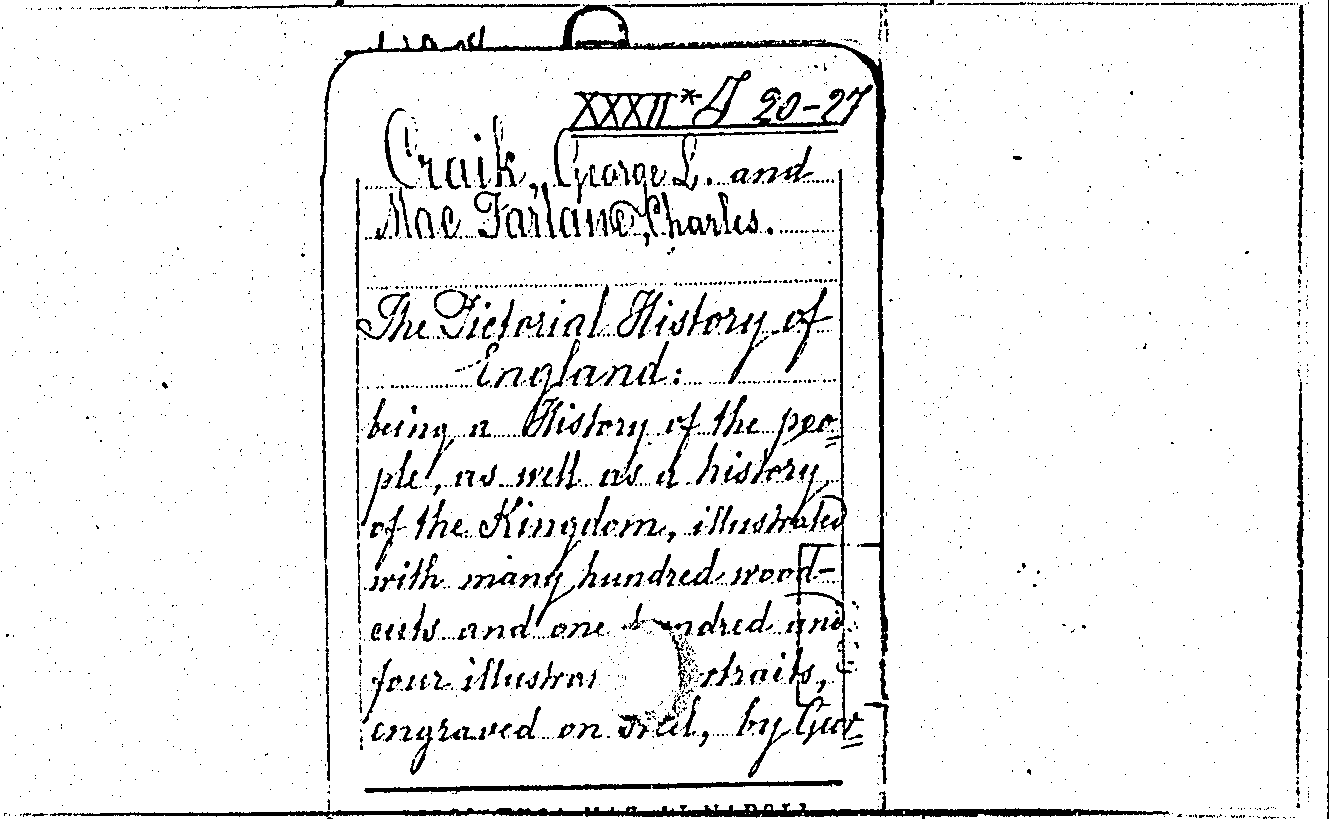 XXXII* J 20-27
Craik, George L. and
Mac Farlane, Charles.
The Pictorial History of
England:
being a History of the peo=
ple, as well as a history
of the Kingdom, illustrated
with many hundred wood-
cuts and one hundred and
four
engraved on steel, by Geor=